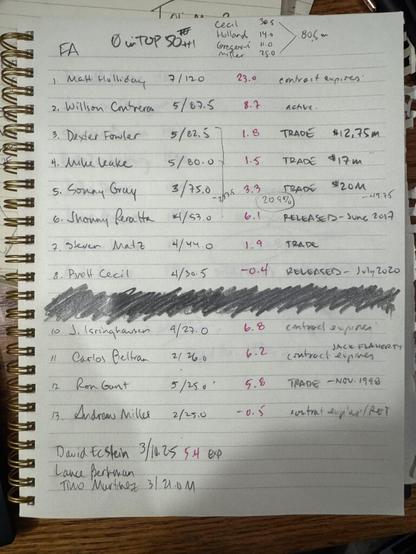 FA
0 in TOP 50
Cecil 30.5
Holland 14.0
Gregerson 11.0
Miller 25.0
80.5m
1. Matt Holliday 7/120 23.0 contract expires
2. Willson Contreras 5/87.5 8.7 active
3. Dexter Fowler 5/82.5 1.8 TRADE $12,75m
4. Mike Leake 5/80.0 1.5 TRADE $17m
5. Sonny Gray 3/75.0 3.3 TRADE $20M
(20.9%) -49.75
6. Jhonny Peralta 4/53.0 6.1 RELEASED - June 2017
7. Steven Matz 4/44.0 1.9 TRADE
8. Brett Cecil 4/30.5 -0.4 RELEASED - July 2020
10 J. Isringhausen 4/27.0 6.8 contract expires
JACK FLAHERTY
11 Carlos Beltran 2/26.0 6.2 contract expires
12 Ron Gant 5/25.0 5.8 TRADE - NOV. 1998
13. Andrew Miller 2/25.0 -0.5 contract expires/RET
David Eckstein 3/10.25 5.4 exp
Lance Berkman
Tino Martinez 3/21.0M